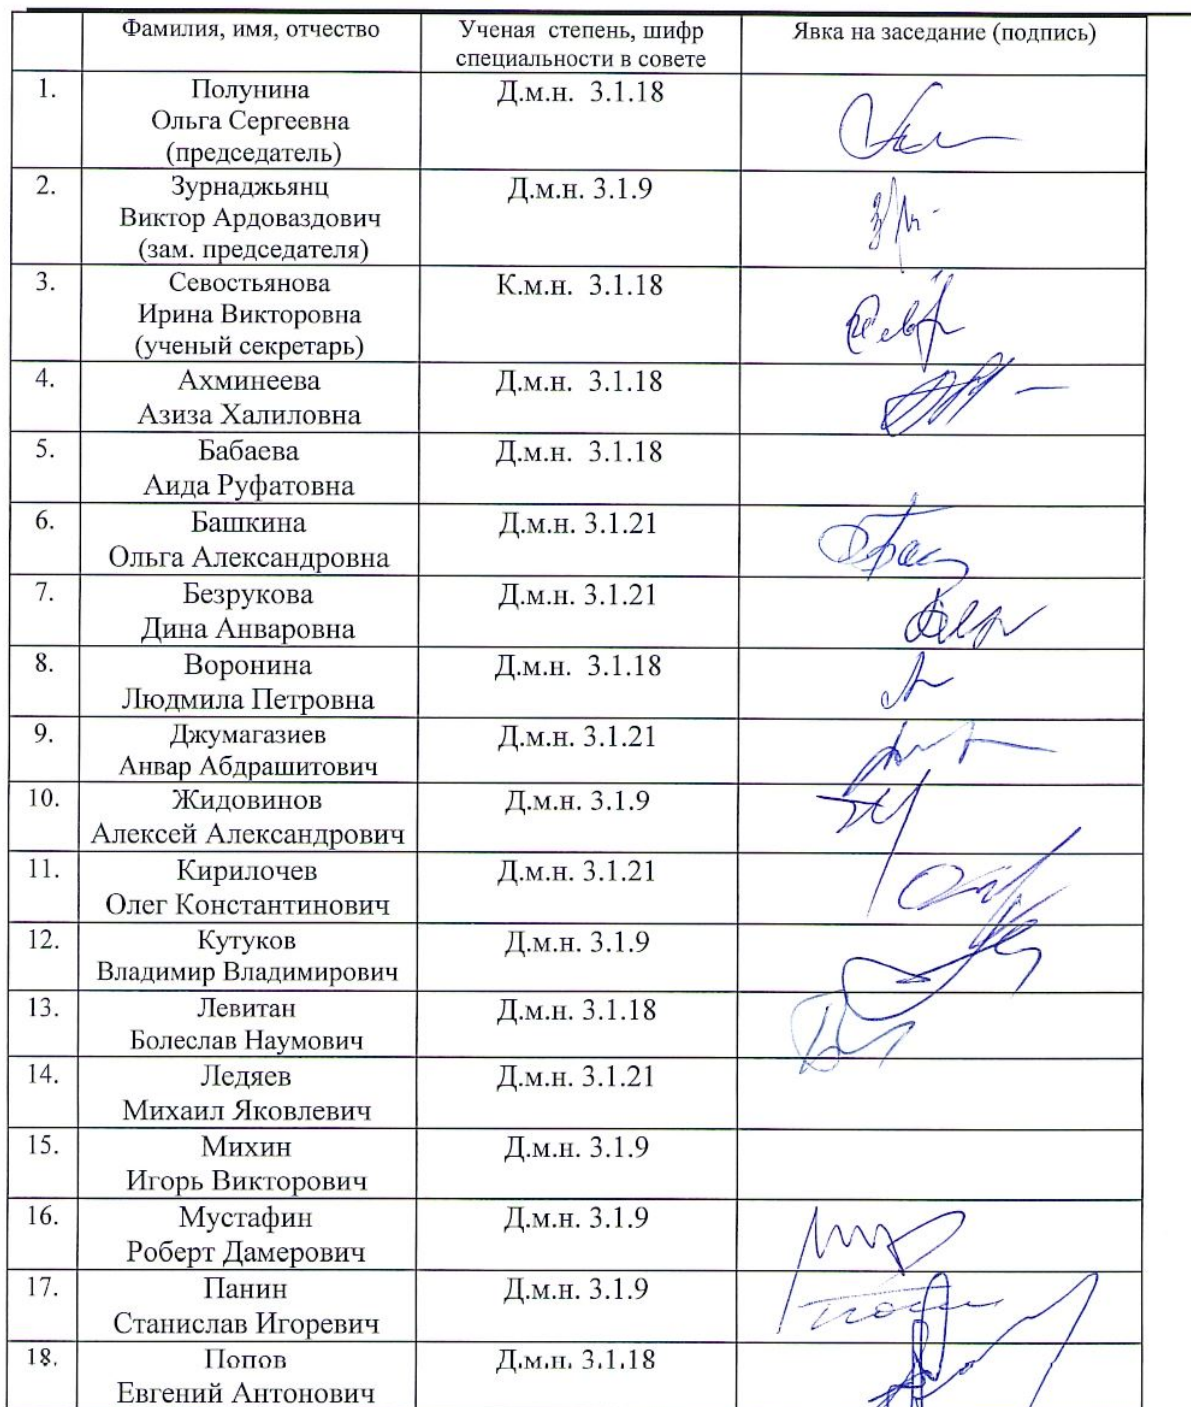 Фамилия, имя, отчество
Ученая степень, шифр
специальности в совете
Явка на заседание (подпись)
1.
Полунина
Ольга Сергеевна
(председатель)
Д.м.н. 3.1.18
2.
Зурнаджьянц
Виктор Ардоваздович
(зам. председателя)
Д.м.н. 3.1.9
3.
Севостьянова
Ирина Викторовна
(ученый секретарь)
К.м.н. 3.1.18
4.
Ахминеева
Азиза Халиловна
Д.м.н. 3.1.18
5.
Бабаева
Аида Руфатовна
Д.м.н. 3.1.18
6.
Башкина
Ольга Александровна
Д.м.н. 3.1.21
7.
Безрукова
Дина Анваровна
Д.м.н. 3.1.21
8.
Воронина
Людмила Петровна
Д.м.н. 3.1.18
9.
Джумагазиев
Анвар Абдрашитович
Д.м.н. 3.1.21
10.
Жидовинов
Алексей Александрович
Д.м.н. 3.1.9
11.
Кирилочев
Олег Константинович
Д.м.н. 3.1.21
12.
Кутуков
Владимир Владимирович
Д.м.н. 3.1.9
13.
Левитан
Болеслав Наумович
Д.м.н. 3.1.18
14.
Ледяев
Михаил Яковлевич
Д.м.н. 3.1.21
15.
Михин
Игорь Викторович
Д.м.н. 3.1.9
16.
Мустафин
Роберт Дамерович
Д.м.н. 3.1.9
17.
Панин
Станислав Игоревич
Д.м.н. 3.1.9
18.
Попов
Евгений Антонович
Д.м.н. 3.1.18